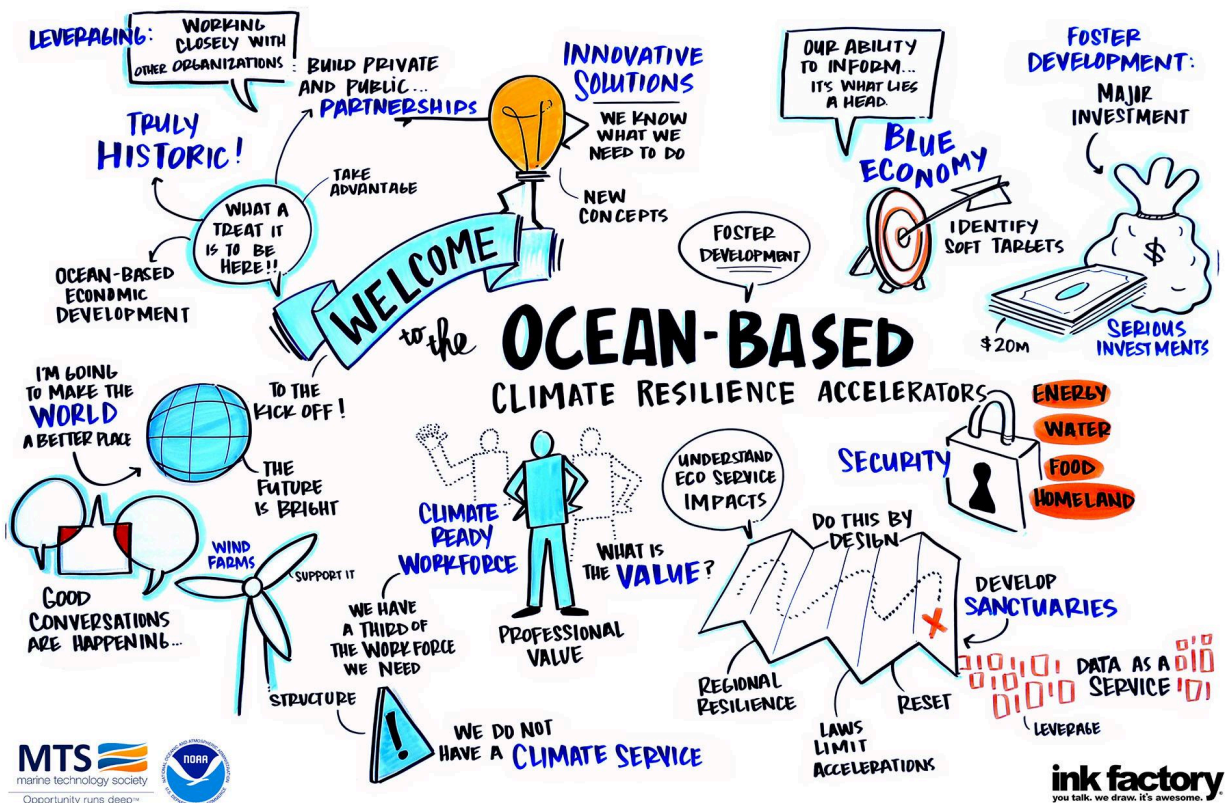 LEVERAGING:
WORKING
CLOSELY WITH
OTHER ORGANIZATIONS
BUILD PRIVATE
AND PUBLIC...
PARTNERSHIPS
TRULY
HISTORIC!
TAKE
ADVANTAGE
WHAT A
TREAT IT
IS TO BE
HERE!!
OCEAN-BASED
ECONOMIC
DEVELOPMENT
INNOVATIVE
SOLUTIONS
WE KNOW
WHAT WE
NEED TO DO
NEW
CONCEPTS
OUR ABILITY
TO INFORM...
IT'S WHAT LIES
A HEAD.
BLUE
ECONOMY
IDENTIFY
SOFT TARGETS
FOSTER
DEVELOPMENT:
MAJIR
INVESTMENT
$
$20M
SERIOUS
INVESTMENTS
FOSTER
DEVELOPMENT
WELCOME
to the
OCEAN-BASED
CLIMATE RESILIENCE ACCELERATORS
TO THE
KICK OFF!
I'M GOING
TO MAKE THE
WORLD
A BETTER PLACE
THE
FUTURE
IS BRIGHT
GOOD
CONVERSATIONS
ARE HAPPENING...
WIND
FARMS
SUPPORT IT
STRUCTURE
CLIMATE
READY
WORKFORCE
WE HAVE
A THIRD OF
THE WORKFORCE
WE NEED
!
WE DO NOT
HAVE A CLIMATE SERVICE
WHAT IS
THE VALUE?
PROFESSIONAL
VALUE
UNDERSTAND
ECO SERVICE
IMPACTS
SECURITY
ENERGY
WATER
FOOD
HOMELAND
DO THIS BY
DESIGN
DEVELOP
SANCTUARIES
REGIONAL
RESILIENCE
LAWS
LIMIT
ACCELERATIONS
RESET
DATA AS A
SERVICE
LEVERAGE
MTS
marine technology society
Opportunity runs deep™
NOAA
ink factory
you talk. we draw. it's awesome.